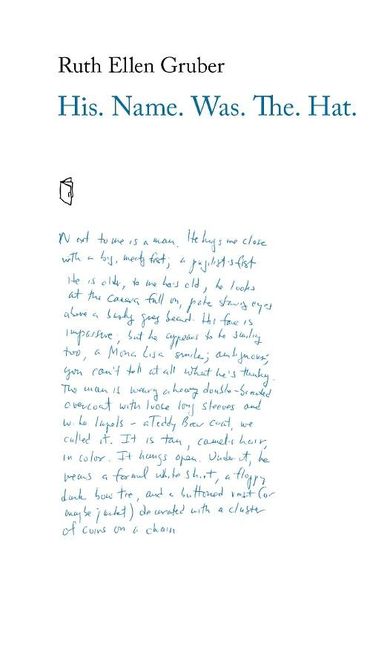 Ruth Ellen Gruber
His. Name. Was. The. Hat.
Next to me is a man. He hugs me close
with a big, meaty fist; a pugilist's fist
He is older, to me he's old, he looks
at the camera full on, pale staring eyes
above a bushy grey beard. His face is
impassive, but he appears to be smiling
too, a Mona Lisa smile; ambiguous;
you can't tell at all what he's thinking.
The man is wearing a heavy double-breasted
overcoat with loose long sleeves and
wide lapels - a Teddy Bear coat, we
called it. It is tan, camel's hair,
in color. It hangs open. Under it, he
wears a formal white shirt, a floppy
dark bow tie, and a buttoned vest (or
maybe jacket) decorated with a cluster
of coins on a chain